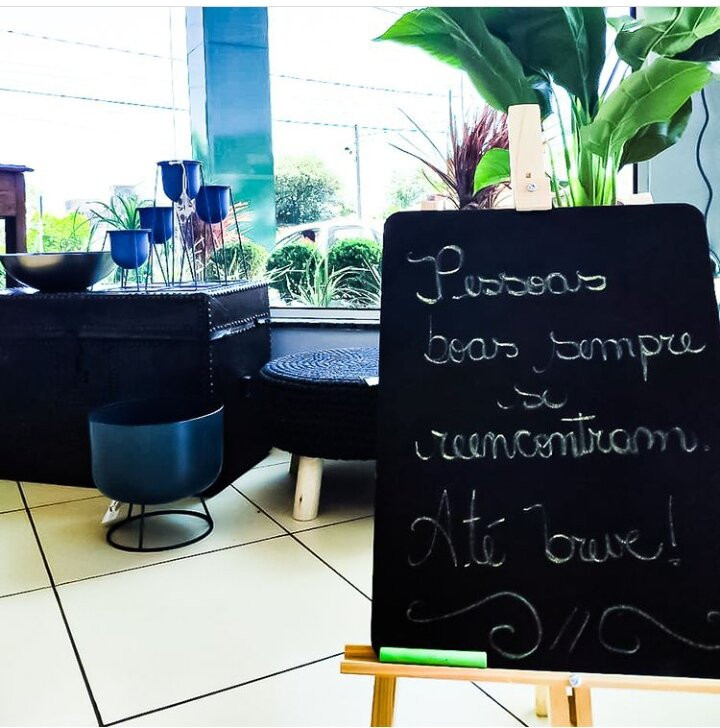 Pessoas
boas sempre
se
reencontram.
Até breve!